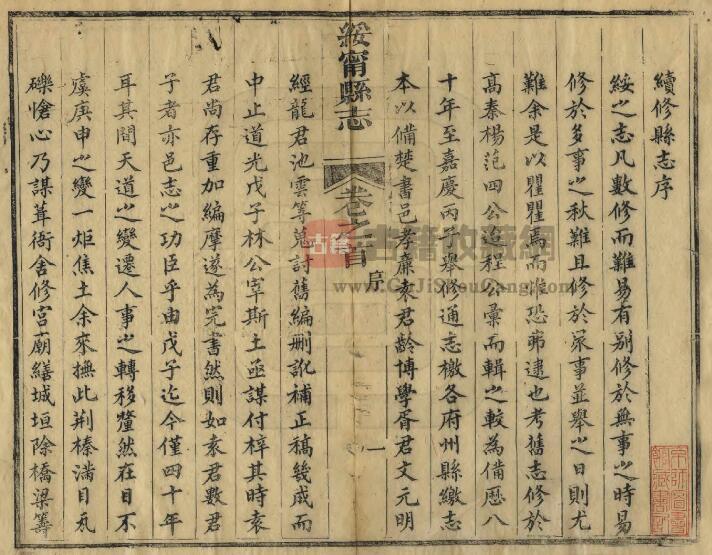 續修縣志序
綏之志凡數修而難易有別修於無事之時易
修於多事之秋難且修於眾事並舉之日則尤
難余是以瞿瞿焉而惟恐弗逮也考舊志修於
高秦楊范四公迨程公彙而輯之較為備歷八
十年至嘉慶丙子舉修通志檄各府州縣繳志
本以備楚書邑孝廉袁君齡博學胥君文元明
綏甯縣志
卷之首
序
一
經龍君池雲等蒐討舊編刪訛補正稿幾成而
中止道光戊子林公宰斯土亟謀付梓其時袁
君尚存重加編摩遂為完書然則如袁君數君
子者亦邑志之功臣乎由戊子迄今僅四十年
耳其間天道之變遷人事之轉移釐然在目不
虞庚申之變一炬焦土余來撫此荆榛滿目瓦
礫愴心乃謀葺衙舍修宮廟繕城垣除橋梁籌
古籍
古籍收藏網
www.GuJiShouCang.com